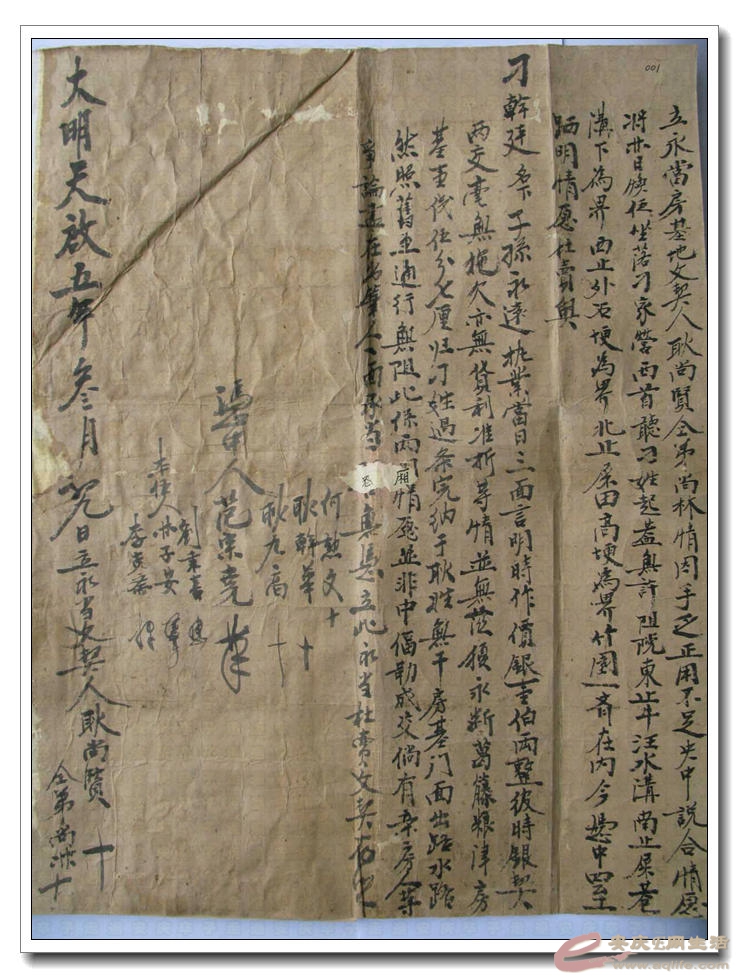 001
立永當房基地文契人耿尚賢仝弟尚林情因手乏正用不足央中說合情愿
將昔日煥伍坐落刁家營西首聽刁姓起蓋無許阻𢫬東止牛汪水溝南止屎巷
溝下為界西止外石埂為界北止屎田高埂為界竹園一齊在內今憑中四至
晒明情愿杜賣與
刁幹廷名下子孫永遠執業當日三面言明時作價銀壹伯兩整彼時銀契
兩交毫無拖欠亦無貸利准折等情並無蒂損永斷葛藤粮津房
基壹伐伍分七厘归刁姓過条完納于耿姓無干房基门面出路水路
然照舊車通行無阻此係兩廂情愿並非中偪勒成交倘有親房人等
爭論盡在出筆人一面承当恐口無憑立此永当杜賣文契存它
何懃文十
耿幹華十
耿九高十
憑中人范宗堯筆
劉秉喜
本保人 子安
大明天啟五年叁月 九日立永当文契人耿尚賢十
仝弟尚林十
e 安庆E网生活
www.aqlife.com